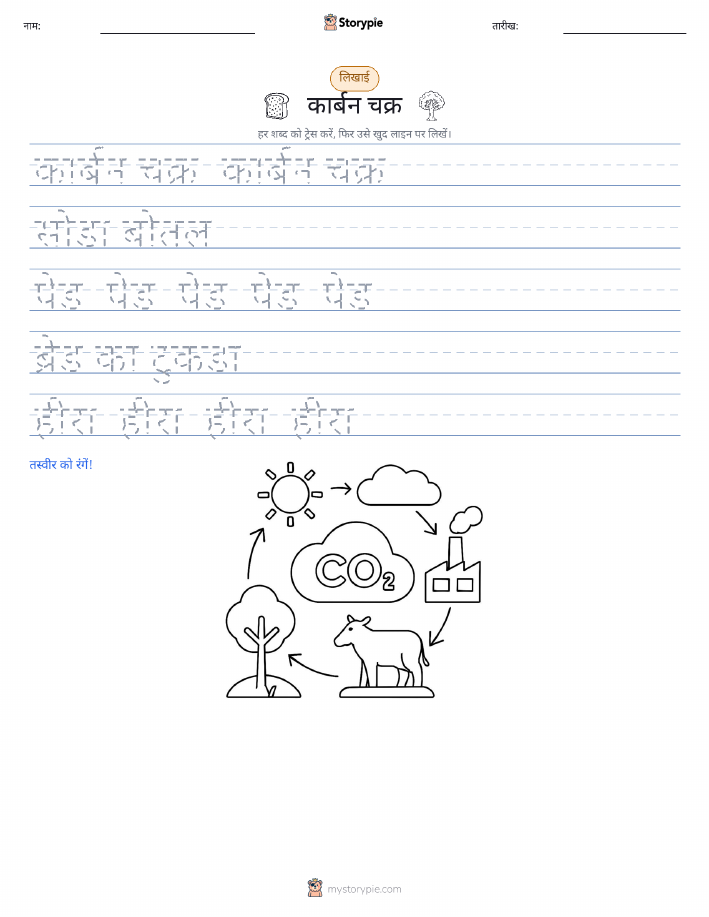 नाम:
Storypie
तारीख:
लिखाई
कार्बन चक्र
हर शब्द को ट्रेस करें, फिर उसे खुद लाइन पर लिखें।
कार्बन चक्र कार्बन चक्र
सोडा बोतल
पेड पेड पेड पेड पेड
ब्रेड का टुकडा
हीरा हीरा हीरा हीरा
तस्वीर को रंगें!
CO₂
mystorypie.com